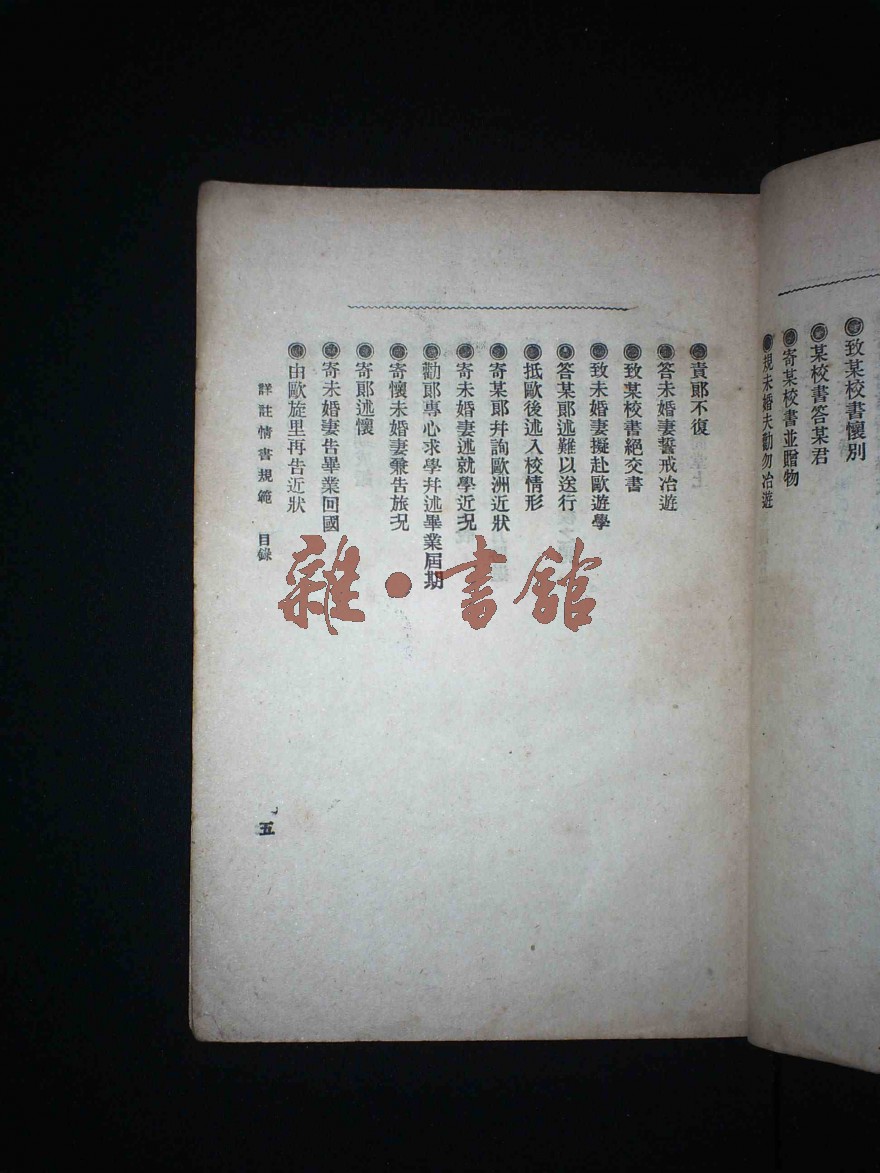 致某校書懷別
某校書答某君
寄某校書並贈物
規未婚夫勸勿冶遊
責郎不復
答未婚妻誓戒冶遊
致某校書絕交書
致未婚妻擬赴歐遊學
答某郎述難以送行
抵歐後述入校情形
寄某郎幷詢歐洲近狀
寄未婚妻述就學近况
勸郎專心求學幷述畢業屆期
寄懷未婚妻兼吿旅况
寄郎述懷
寄未婚妻吿畢業回國
由歐旋里再吿近狀
詳註情書規範 目錄
五
雜·書館